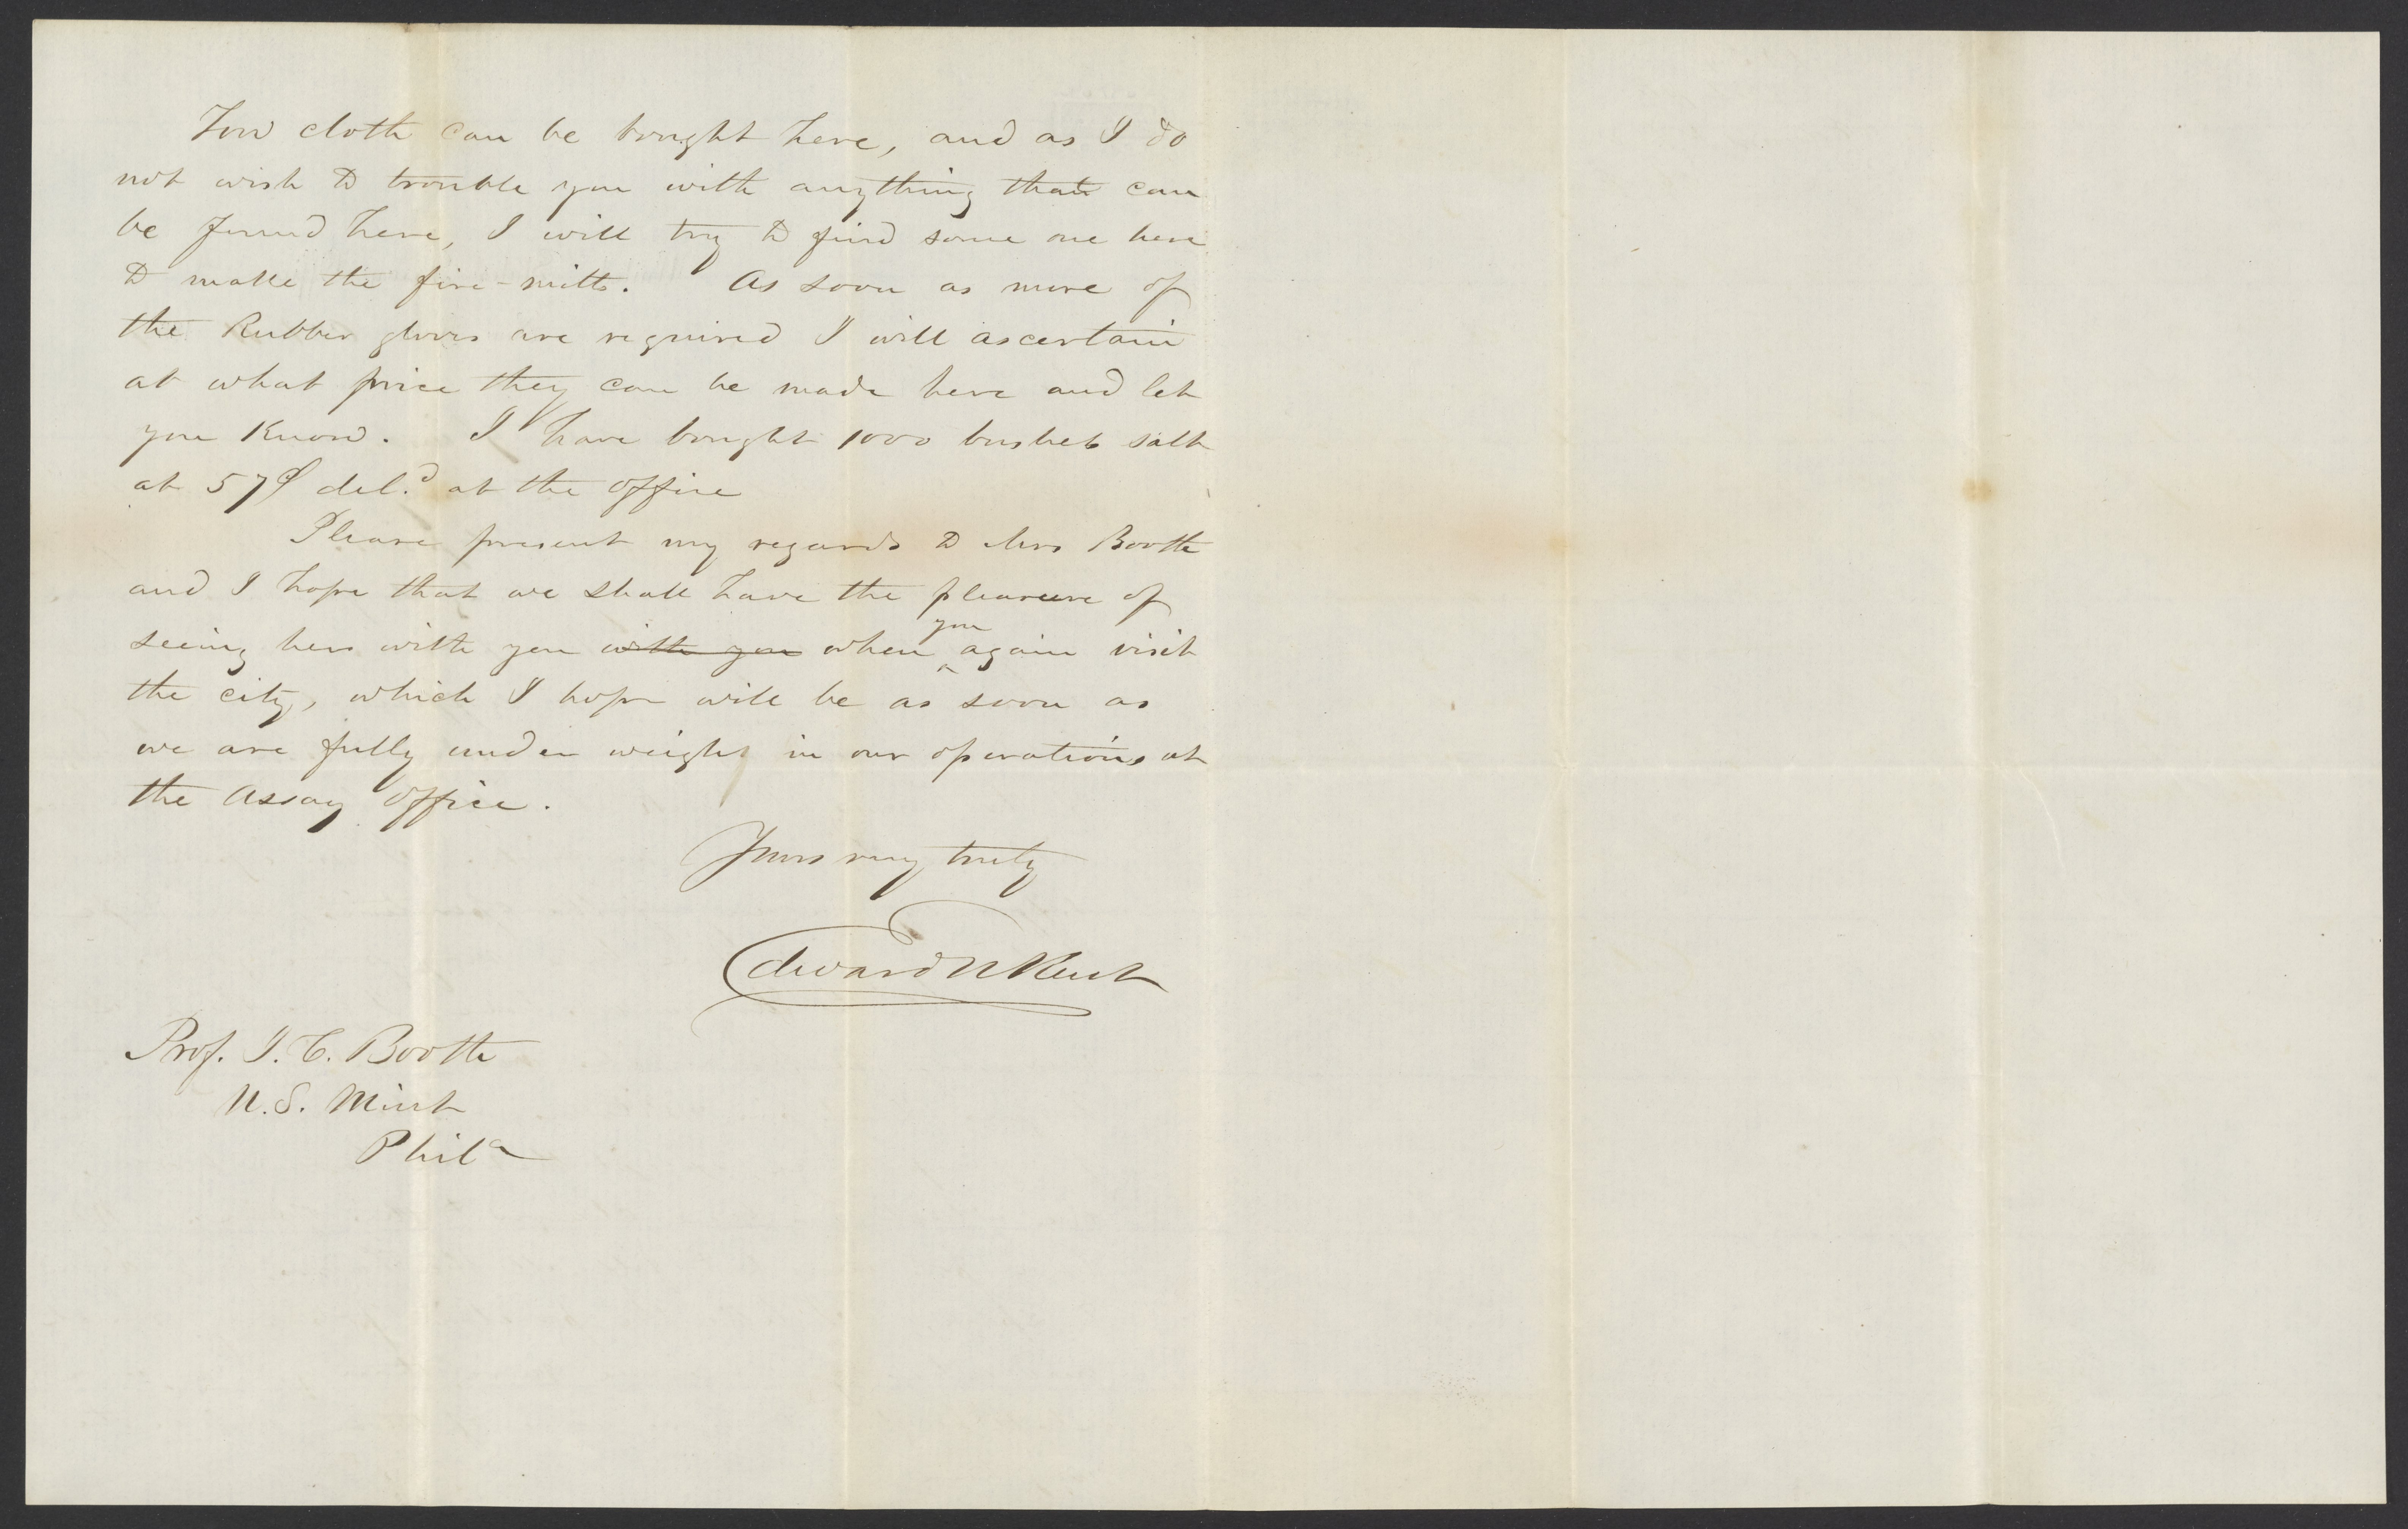 Tow cloth can be bought here, and as I do
not wish to trouble you with anything that can
be found here, I will try to find some one here
to make the fire-mitts. As soon as more of
the Rubber gloves are required I will ascertain
at what price they can be made here and let
you know. I have bought 1000 bushels salt
at 57¢ del.d at the office
Please present my regards to Mrs Booth
and I hope that we shall have the pleasure of
seeing her with you with you when you again visit
the city, which I hope will be as soon as
we are fully under weight in our operations at
the Assay Office.
Yours very truly
Edward N Kent
Prof. J. C. Booth
U. S. Mint
Phila